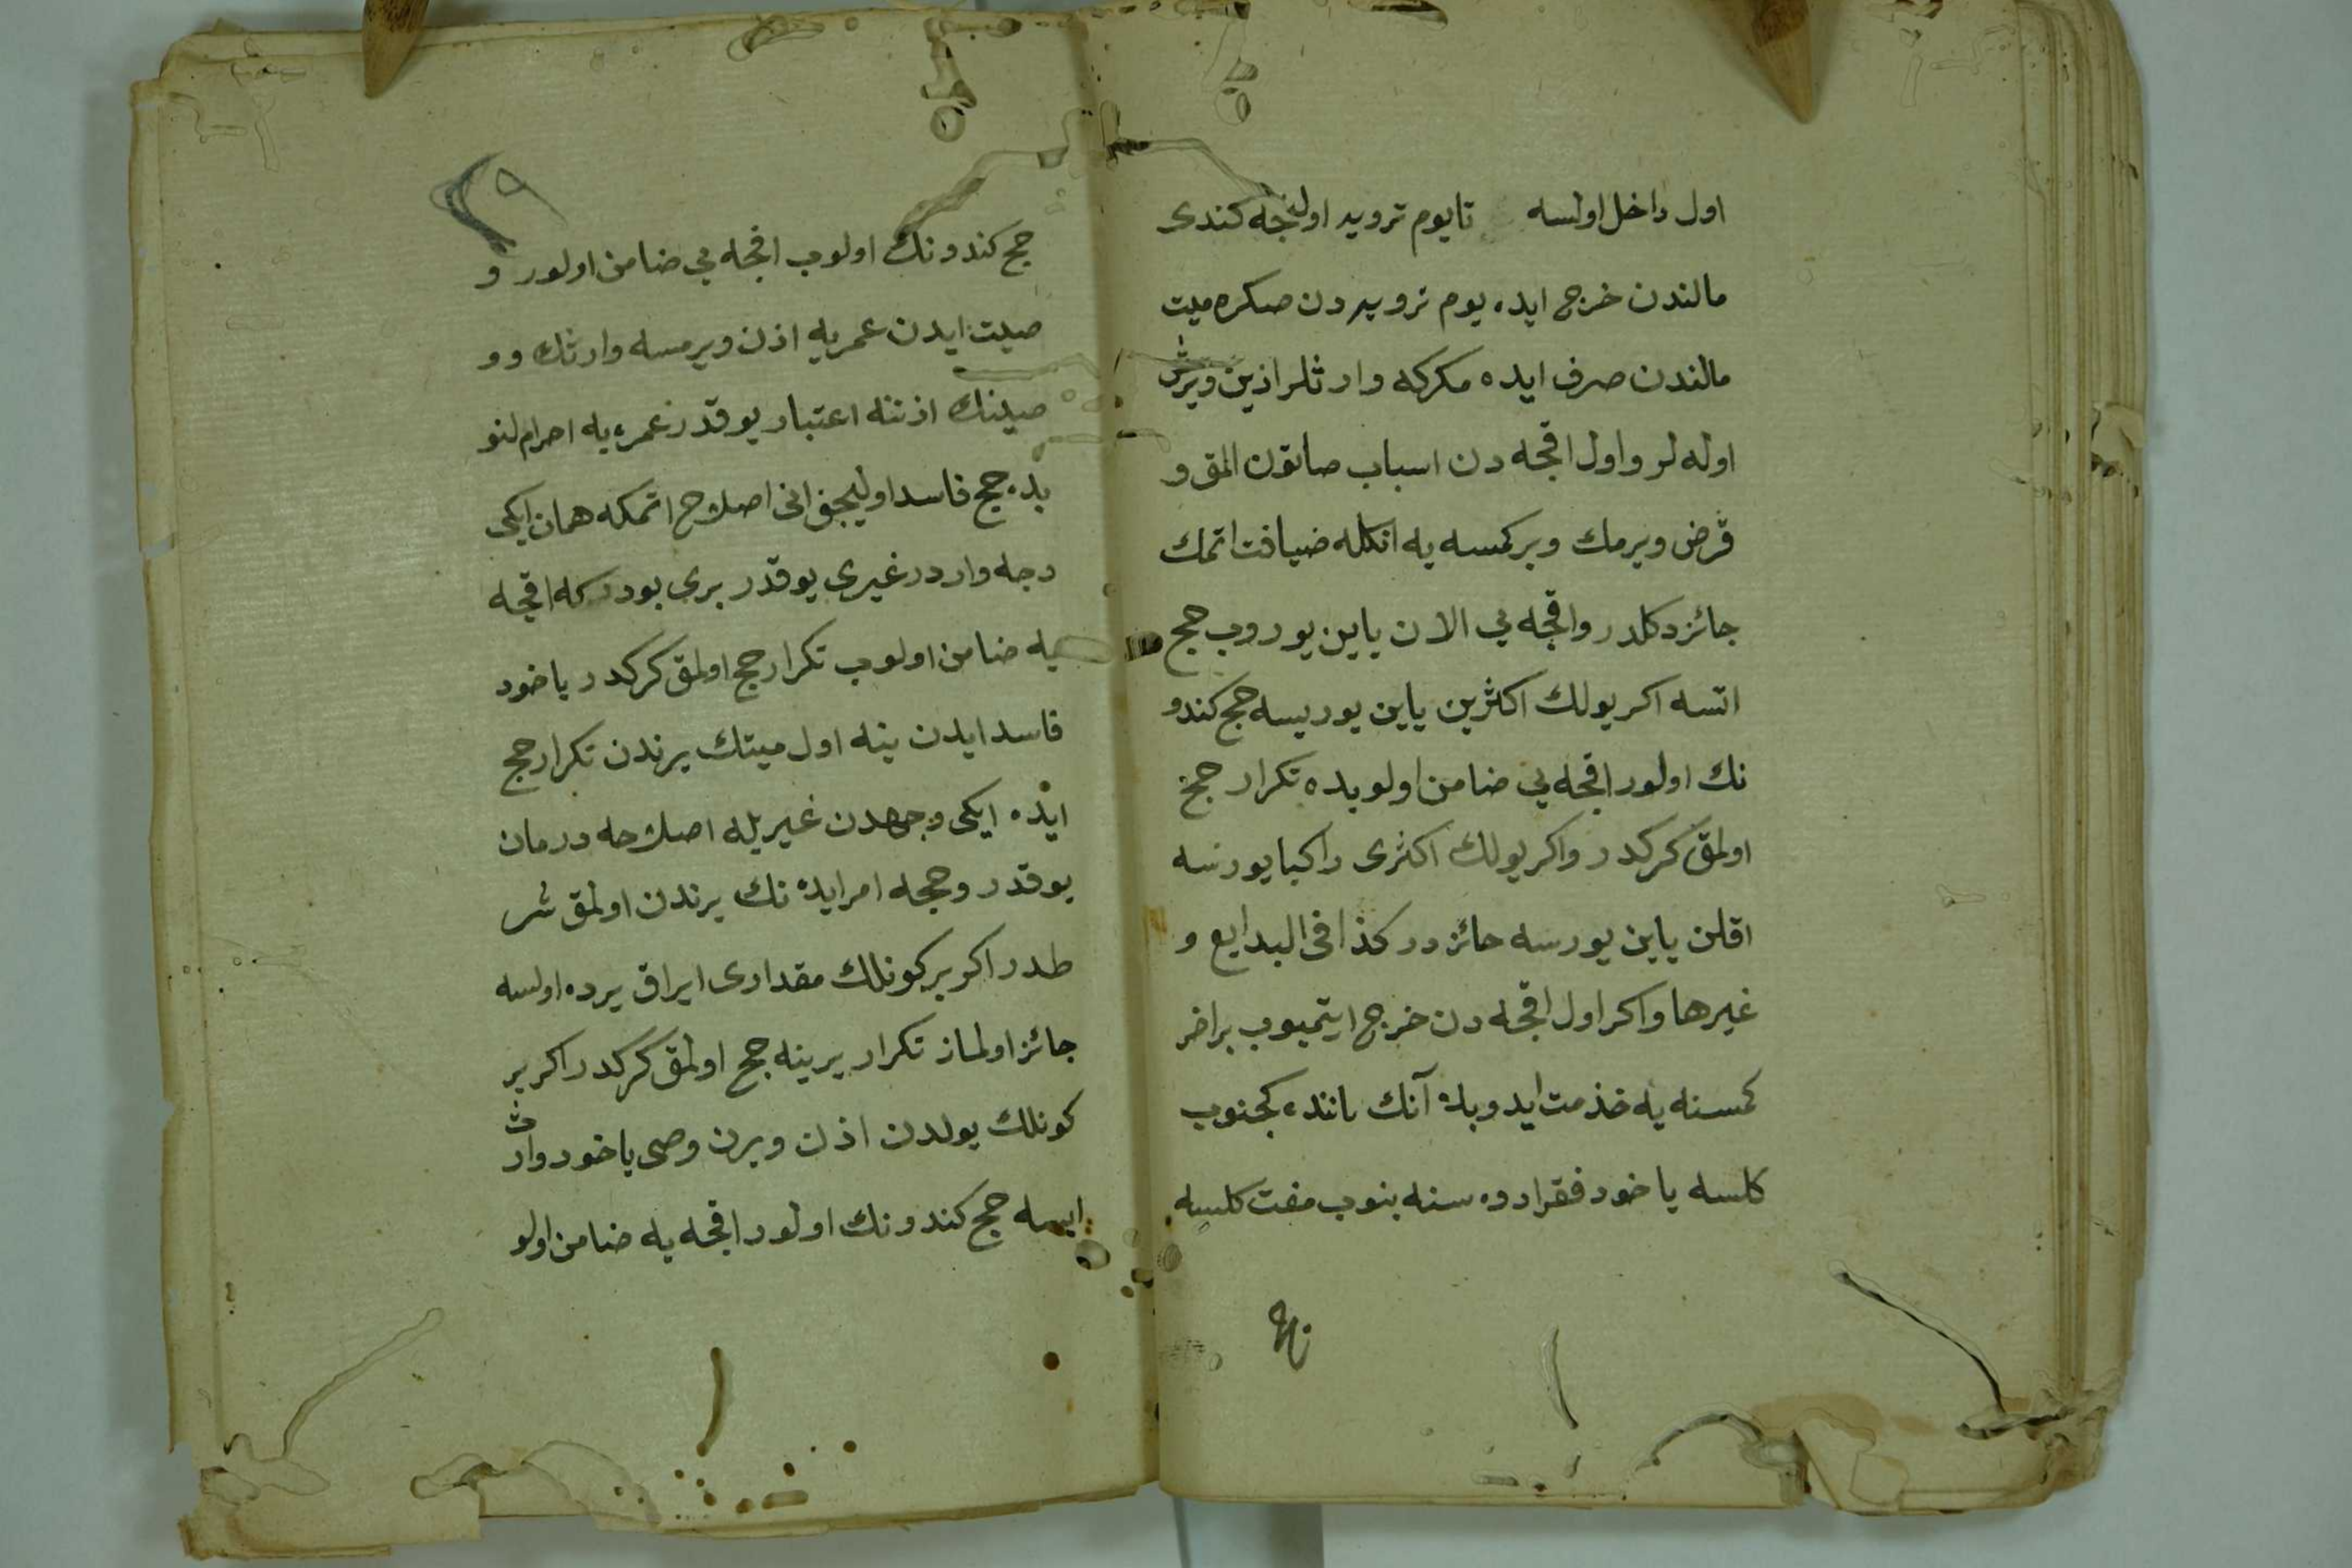 اول داخل اولسه تا يوم ترويه اولنجه كندى
مالندن خرج ايده يوم ترويه دن صكره ميت
مالندن صرف ايده مكركه وارثلر اذين ويرمش
اوله لر واول اقچه دن اسباب صاتون المق و
قرض ويرمك وبر كمسه يه انكله ضيافت اتمك
جائز دكلدر واقچه يى الان ياين يوروب حج
اتسه اكر يولك اكثرين ياين يوريسه حج كندو
نك اولور اقچه يى ضامن اولوبده تكرار حج
اولمق كركدر واكر يولك اكثرى راكبا يورسه
اقلن ياين يورسه جائز در كذا فى البدايع و
غيرها واكر اول اقچه دن خرج ايتميوب براخر
كمسنه يه خذمت ايدوبده آنك ياننده كچنوب
كلسه ياخود فقرا دوه سنه بنوب مفت كلسه
حج كندونك اولوب اقچه يى ضامن اولور و
صيت ايدن عمريه اذن ويرمسه وارثك وو
صينك اذننه اعتبار يوقدر عمره يه احرام لنو
بده حج فاسد اوليجق انى اصلاح اتمكه همان ايكى
وجه واردر غيرى يوقدر برى بودركه اقچه
يه ضامن اولوب تكرار حج اولمق كركدر ياخود
فاسد ايدن ينه اول ميتك يرندن تكرار حج
ايده ايكى وجهدن غيريله اصلاحه درمان
يوقدر وحجه امر ايده نك يرندن اولمق شر
طدر اكر بر كونلك مقدارى ايراق يرده اولسه
جائز اولماز تكرار يرينه حج اولمق كركدر اكر بر
كونلك يولدن اذن ويرن وصى ياخود وارث
ايسه حج كندونك اولور اقچه يه ضامن اولو